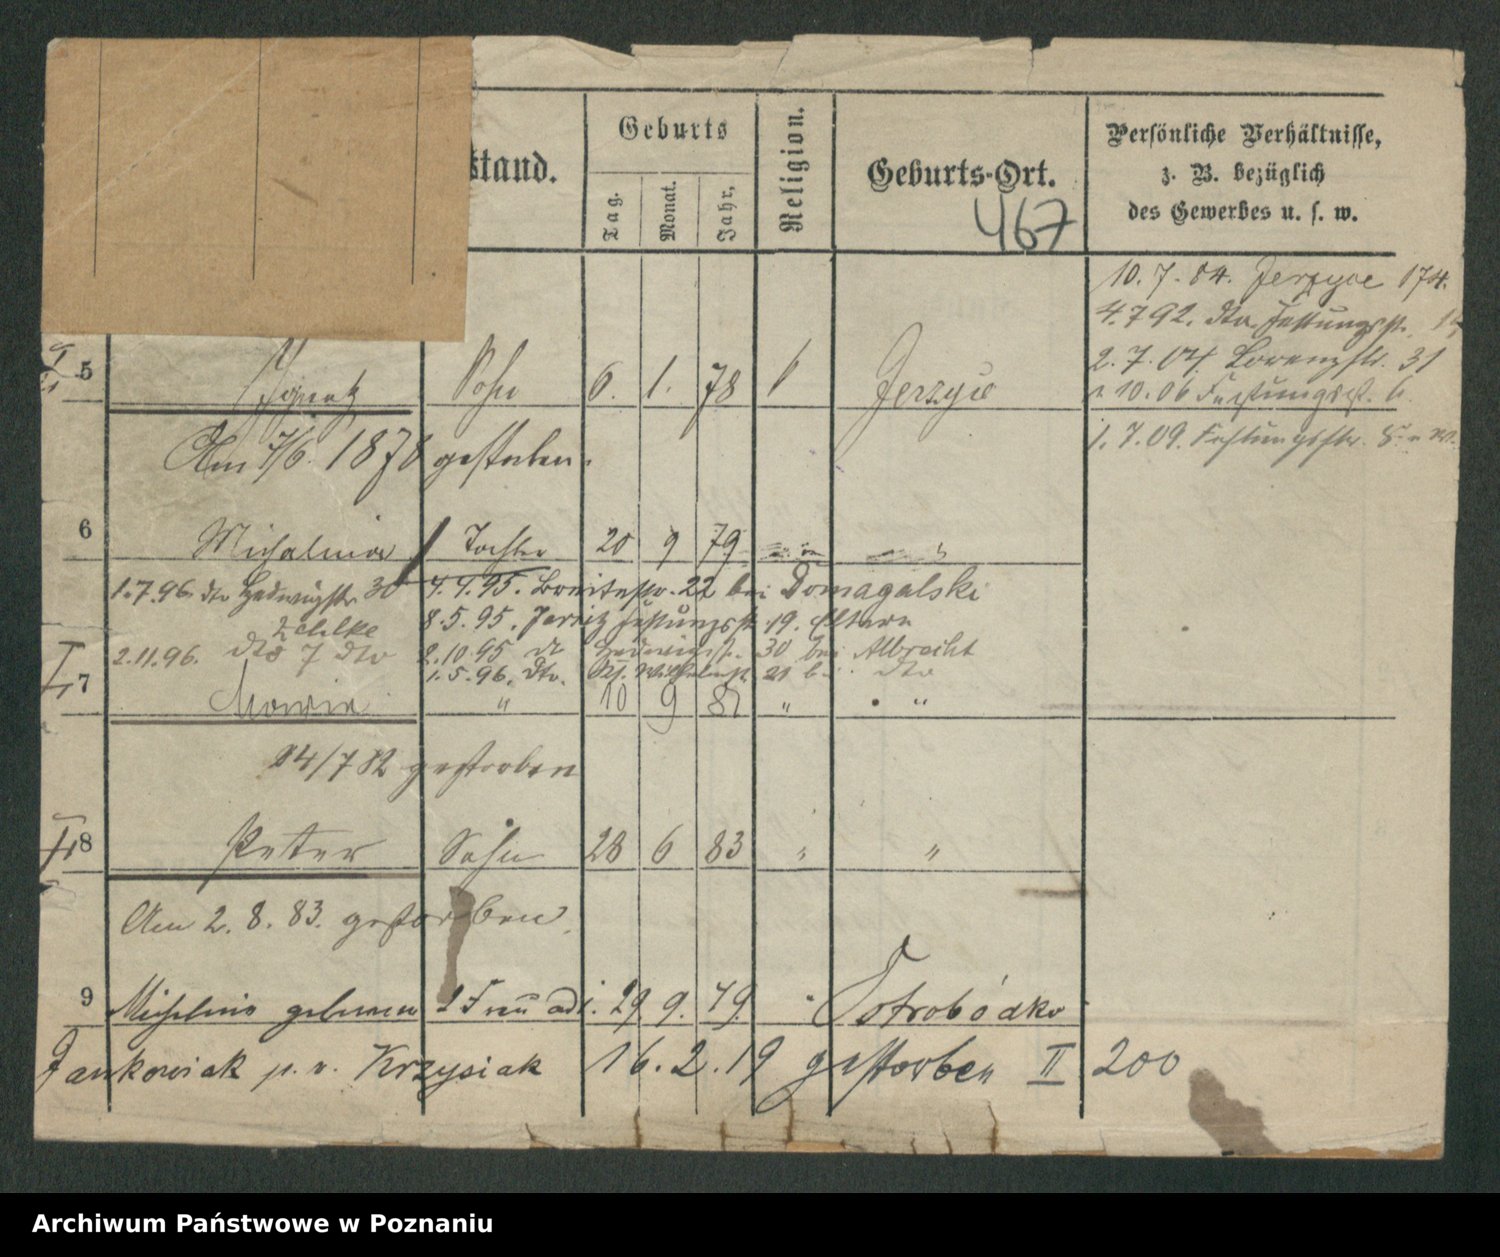 stand.
Geburts
Tag.
Monat.
Jahr.
Religion.
Geburts-Ort.
Persönliche Verhältnisse,
z. B. bezüglich
des Gewerbes u. s. w.
467
10. 7. 84. Jerzyce 174.
4. 7 92. dto. Festungsstr.
2. 7. 04. Lorenzstr. 31
10. 06 Festungsst. 6.
1. 7. 09. Festungsstr.
5 Ignatz Sohn 6. 1. 78 Jerzyce
Am 7/6. 1878 gestorben.
6 Michalina Tochter 20 9 79 "
1.7.96. dto Hedwigstr. 30
4.4.95. 22 bei Domagalski
8.5.95. Jersitz Festungsst. 19. Eltern
2.11.96. dto 7 dto
2.10.95 dto Hedwigsst. 30 bei Albrecht
1.5.96. dto. Wilhelmst. 21 bei dto
7 Maria " 10 9 81 " "
14/7 82 gestorben
8 Peter Sohn 28 6 83 " "
Am 2. 8. 83. gestorben.
9 Frau ad 29 9. 79. "
Jankowiak p. v. Krzysiak 16. 2. 19 gestorben II 200
Archiwum Państwowe w Poznaniu